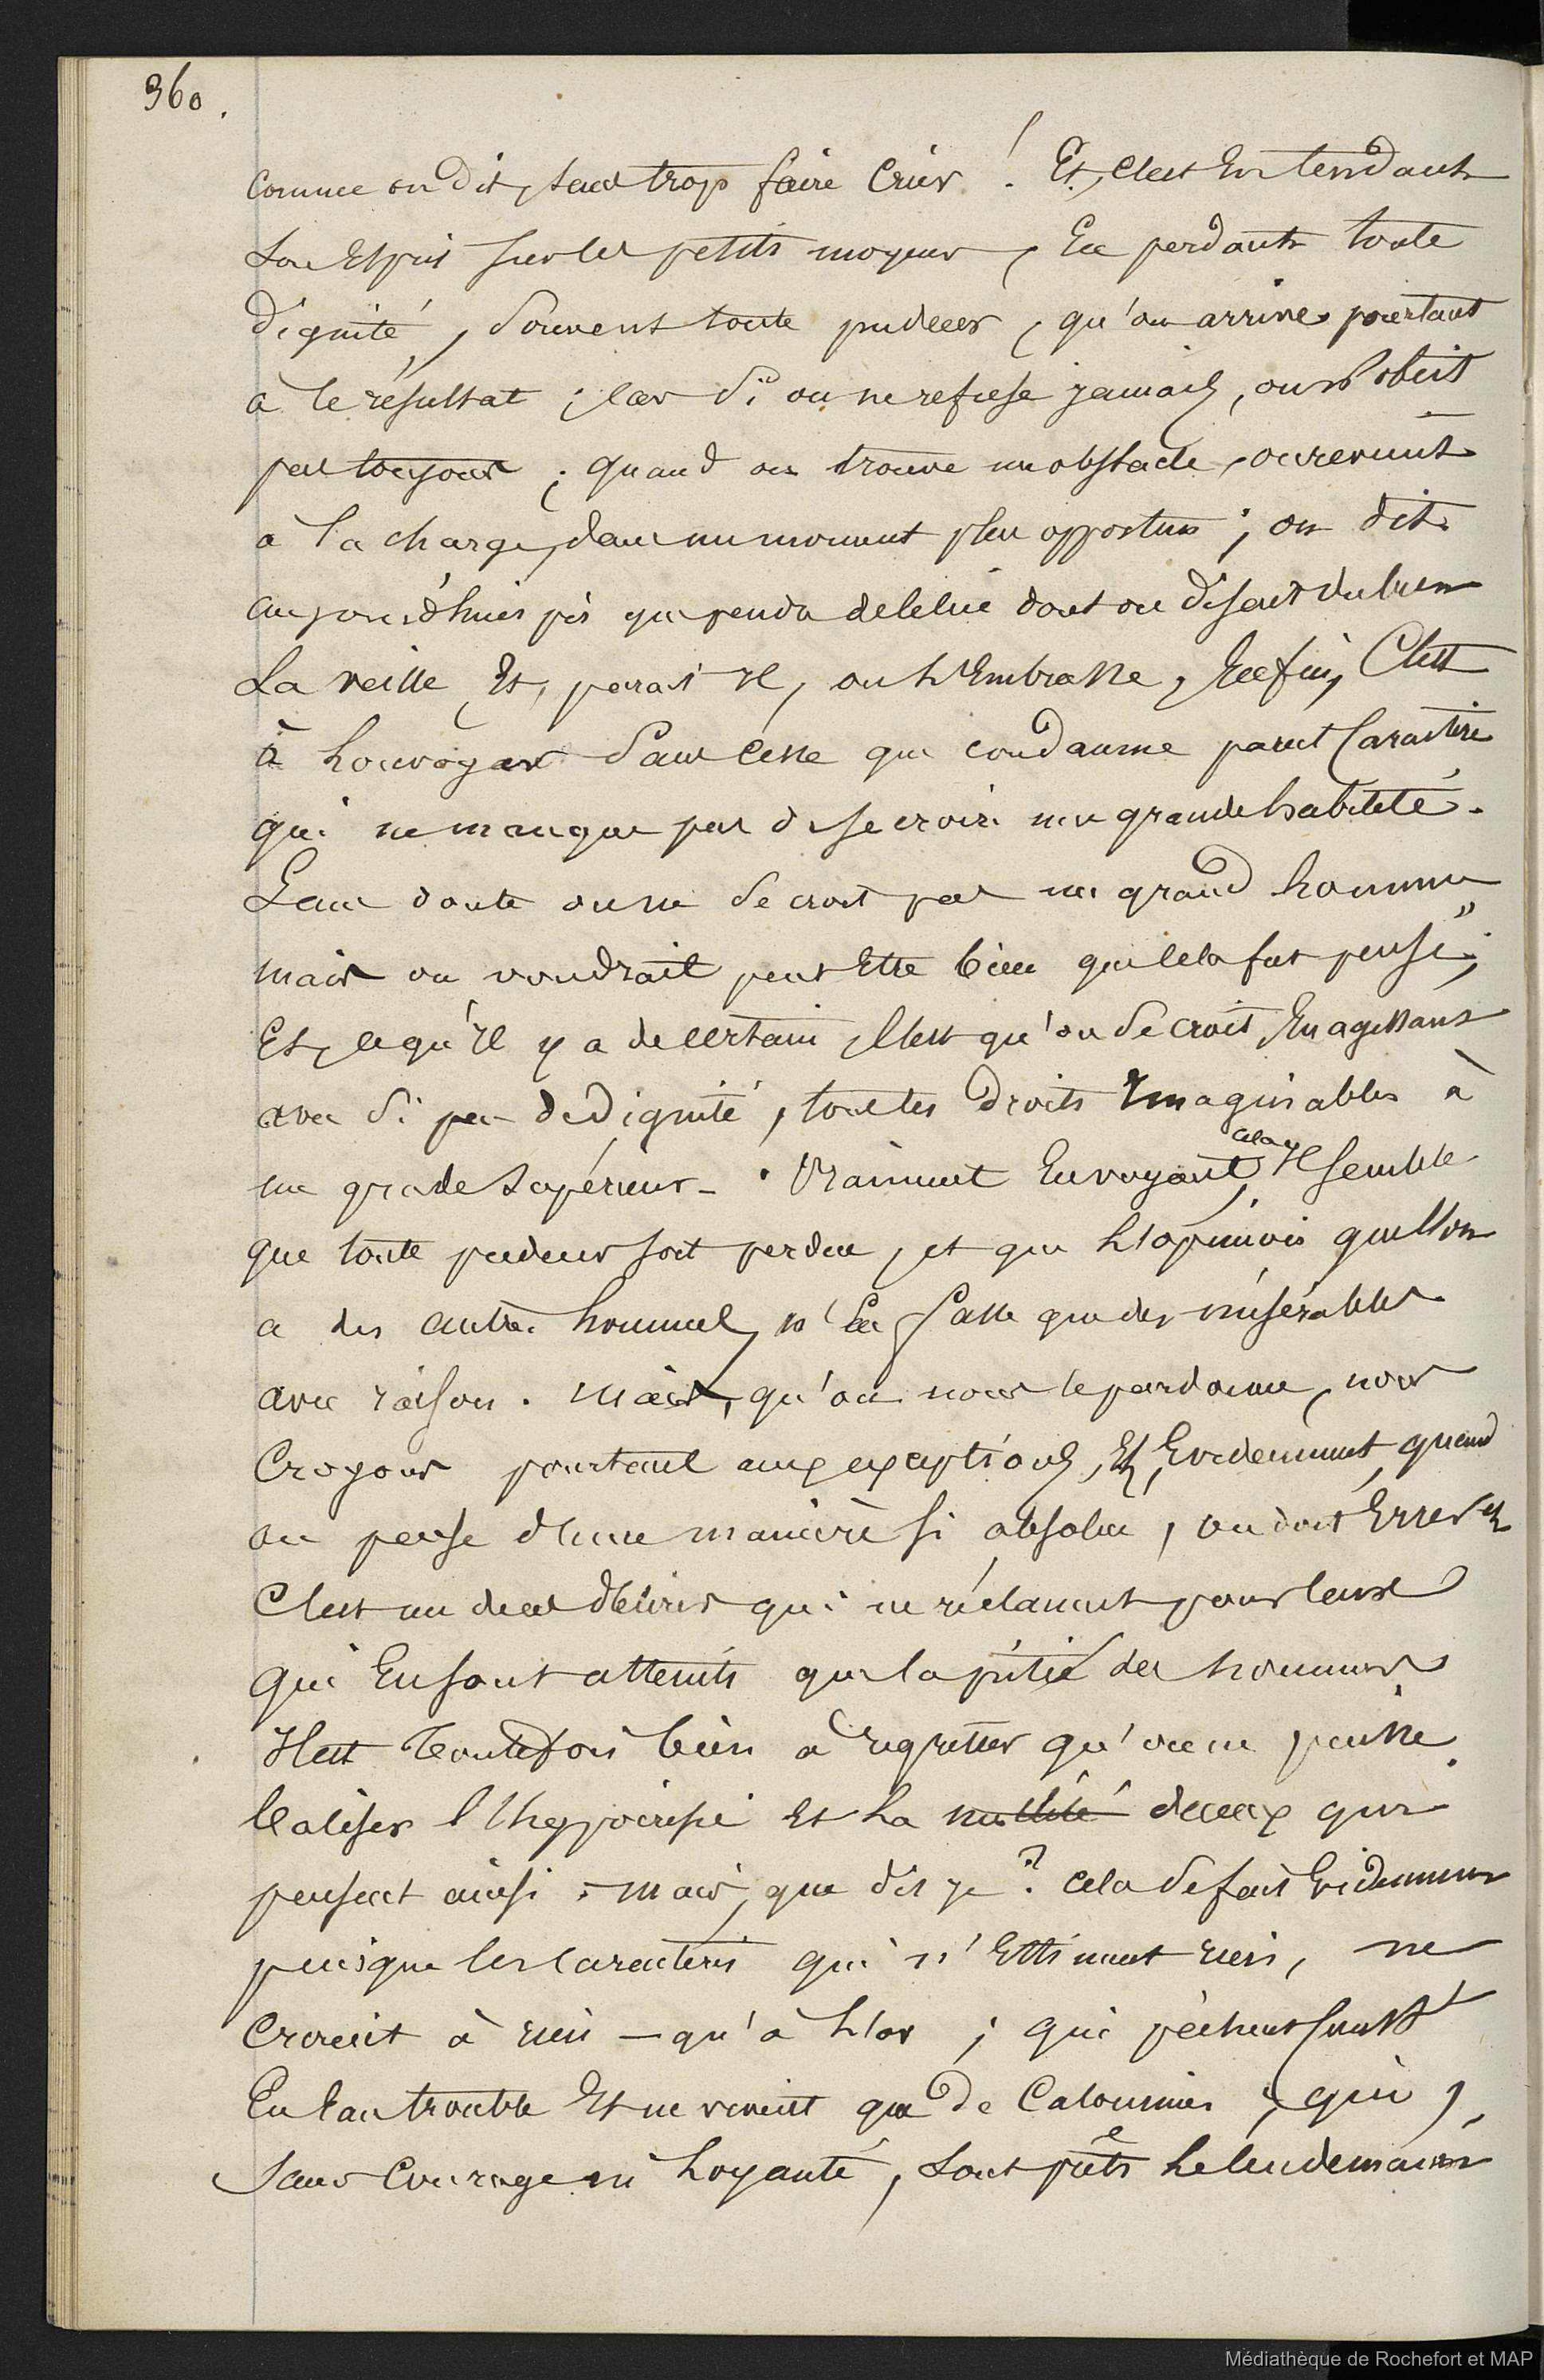 360.
comme on dit, sans trop faire crier ! Et, c'est en tendant
son esprit sur les petits moyens, en perdant toute
dignité, souvent toute pudeur, qu'on arrive pourtant
à ce résultat ; car si on ne refuse jamais, on n'obéit
pas toujours ; quand on trouve un obstacle, on revient
à la charge, dans un moment plus opportun ; on dit
aujourd'hui pis que pendre de celui dont on disait du bien
la veille et, parait il, on l'embrasse, enfin, c'est
à louvoyer sans cesse que condamne pareil caractère
qui ne manque pas de se croire une grande habileté.
Sans doute on ne se croit pas un grand homme
mais on voudrait peut être bien que cela fut pensé ;
Et, ce qu'il y a de certain, c'est qu'on se croit, en agissant
avec si peu de dignité, tous les droits imaginables à
un grade supérieur. Vraiment en voyant cela, il semble
que toute pudeur soit perdue, et que l'opinion que l'on
a des autres hommes, n'en fasse que des misérables
avec raison. Mais, qu'on nous le pardonne, nous
croyons pourtant aux exceptions, et, évidemment, quand
on pense d'une manière si absolue, on doit errer et
c'est un de ces délires qui ne réclament pour ceux
qui en sont atteints que la pitié des hommes
Il est toutefois bien à regretter qu'on ne puisse
réaliser l'hypocrisie et la nullité de ceux qui
pensent ainsi ; mais, que dis je ? cela se fait évidemment
puisque les caractères qui n'estiment rien, ne
croient à rien - qu'à l'or ; qui pêchent
en eau trouble et ne vivent que de calomnies ; qui,
sans courage ni loyauté, sont prêts le lendemain
Médiathèque de Rochefort et MAP